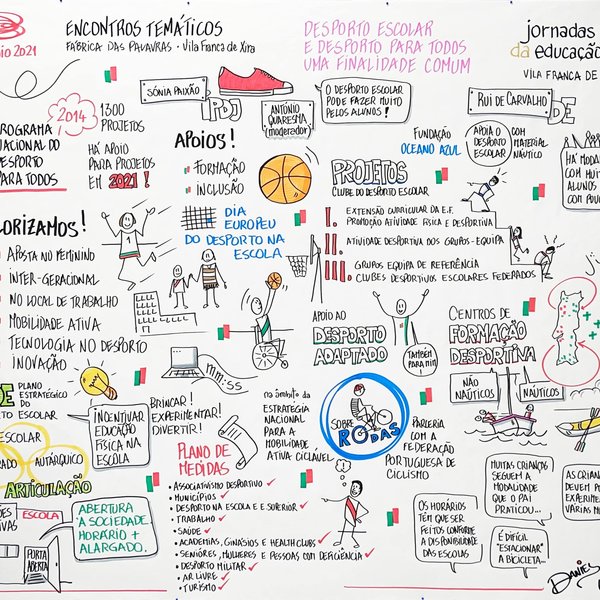 io 2021
ENCONTROS TEMÁTICOS
FÁBRICA DAS PALAVRAS • Vila Franca de Xira
DESPORTO ESCOLAR
E DESPORTO PARA TODOS
UMA FINALIDADE COMUM
jornadas
da educação
VILA FRANCA DE
SÓNIA PAIXÃO
IPDJ
ANTÓNIO
QUARESMA
(moderador)
O DESPORTO ESCOLAR
PODE FAZER MUITO
PELOS ALUNOS!
RUI DE CARVALHO
DE
2014
1300
PROJETOS
PROGRAMA
NACIONAL DE
DESPORTO
PARA TODOS
HÁ APOIO
PARA PROJETOS
EM 2021!
APOIOS!
FORMAÇÃO
INCLUSÃO
FUNDAÇÃO
OCEANO AZUL
APOIA O
DESPORTO
ESCOLAR
COM
MATERIAL
NÁUTICO
HÁ MODA
COM MUIT
ALUNOS
COM POU
PROJETOS
CLUBE DO DESPORTO ESCOLAR
I. EXTENSÃO CURRICULAR DA E.F.
PROMOÇÃO ATIVIDADE FÍSICA E DESPORTIVA
II. ATIVIDADE DESPORTIVA DOS GRUPOS-EQUIPA
III. GRUPOS EQUIPA DE REFERÊNCIA
CLUBES DESPORTIVOS ESCOLARES FEDERADOS
DIA
EUROPEU
DO DESPORTO NA
ESCOLA
LORIZAMOS!
APOSTA NO FEMININO
INTER-GERACIONAL
NO LOCAL DE TRABALHO
MOBILIDADE ATIVA
TECNOLOGIA NO DESPORTO
INOVAÇÃO
1
MM:SS
APOIO AO
DESPORTO
ADAPTADO
TAMBÉM
PARA MIM
CENTROS DE
FORMAÇÃO
DESPORTIVA
NÃO
NÁUTICOS
NÁUTICOS
DE
PLANO
ESTRATÉGICO
DO
TO ESCOLAR
INCENTIVAR
EDUCAÇÃO
FÍSICA NA
ESCOLA
BRINCAR!
EXPERIMENTAR!
DIVERTIR!
na âmbito da
ESTRATEGIA
NACIONAL
PARA A
MOBILIDADE
ATIVA CICLÁVEL
SOBRE
RODAS
PARCERIA
COM A
FEDERAÇÃO
PORTUGUESA DE
CICLISMO
ESCOLAR
ADO
AUTÁRQUICO
ARTICULAÇÃO
ESCOLA
ABERTURA
À SOCIEDADE.
HORÁRIO +
ALARGADO.
PORTA
ABERTA
PLANO DE
MEDIDAS
ASSOCIATIVISMO DESPORTIVO
MUNICÍPIOS
DESPORTO NA ESCOLA E E SUPERIOR
TRABALHO
SAÚDE
ACADEMIAS, GINÁSIOS E HEALTH CLUBS
SENIÓRES, MULHERES E PESSOAS COM DEFICIÊNCIA
DESPORTO MILITAR
AR LIVRE
TURISMO
OS HORÁRIOS
TÊM QUE SER
FEITOS CONFORME
A DISPONIBILIDADE
DAS ESCOLAS
MUITAS CRIANÇAS
SEGUEM A
MODALIDADE
QUE O PAI
PRATICOU...
É DIFÍCIL
"ESTACIONAR"
A BICICLETA...
AS CRIAN
DEVEM PO
EXPERIME
VÁRIAS M